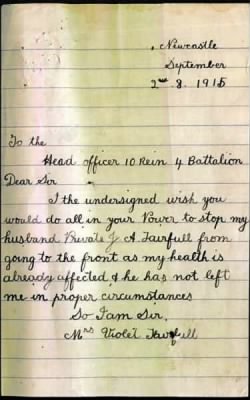 Newcastle
September
2nd. 8. 1915
To the
Head officer 10 Rein 4 Battalion
Dear Sir
I the undersigned wish you
would do all in your Power to stop my
husband Private J A Fairfull from
going to the front as my health is
already affected & he has not left
me in proper circumstances
So I am Sir,
Mrs Violet Fairfull